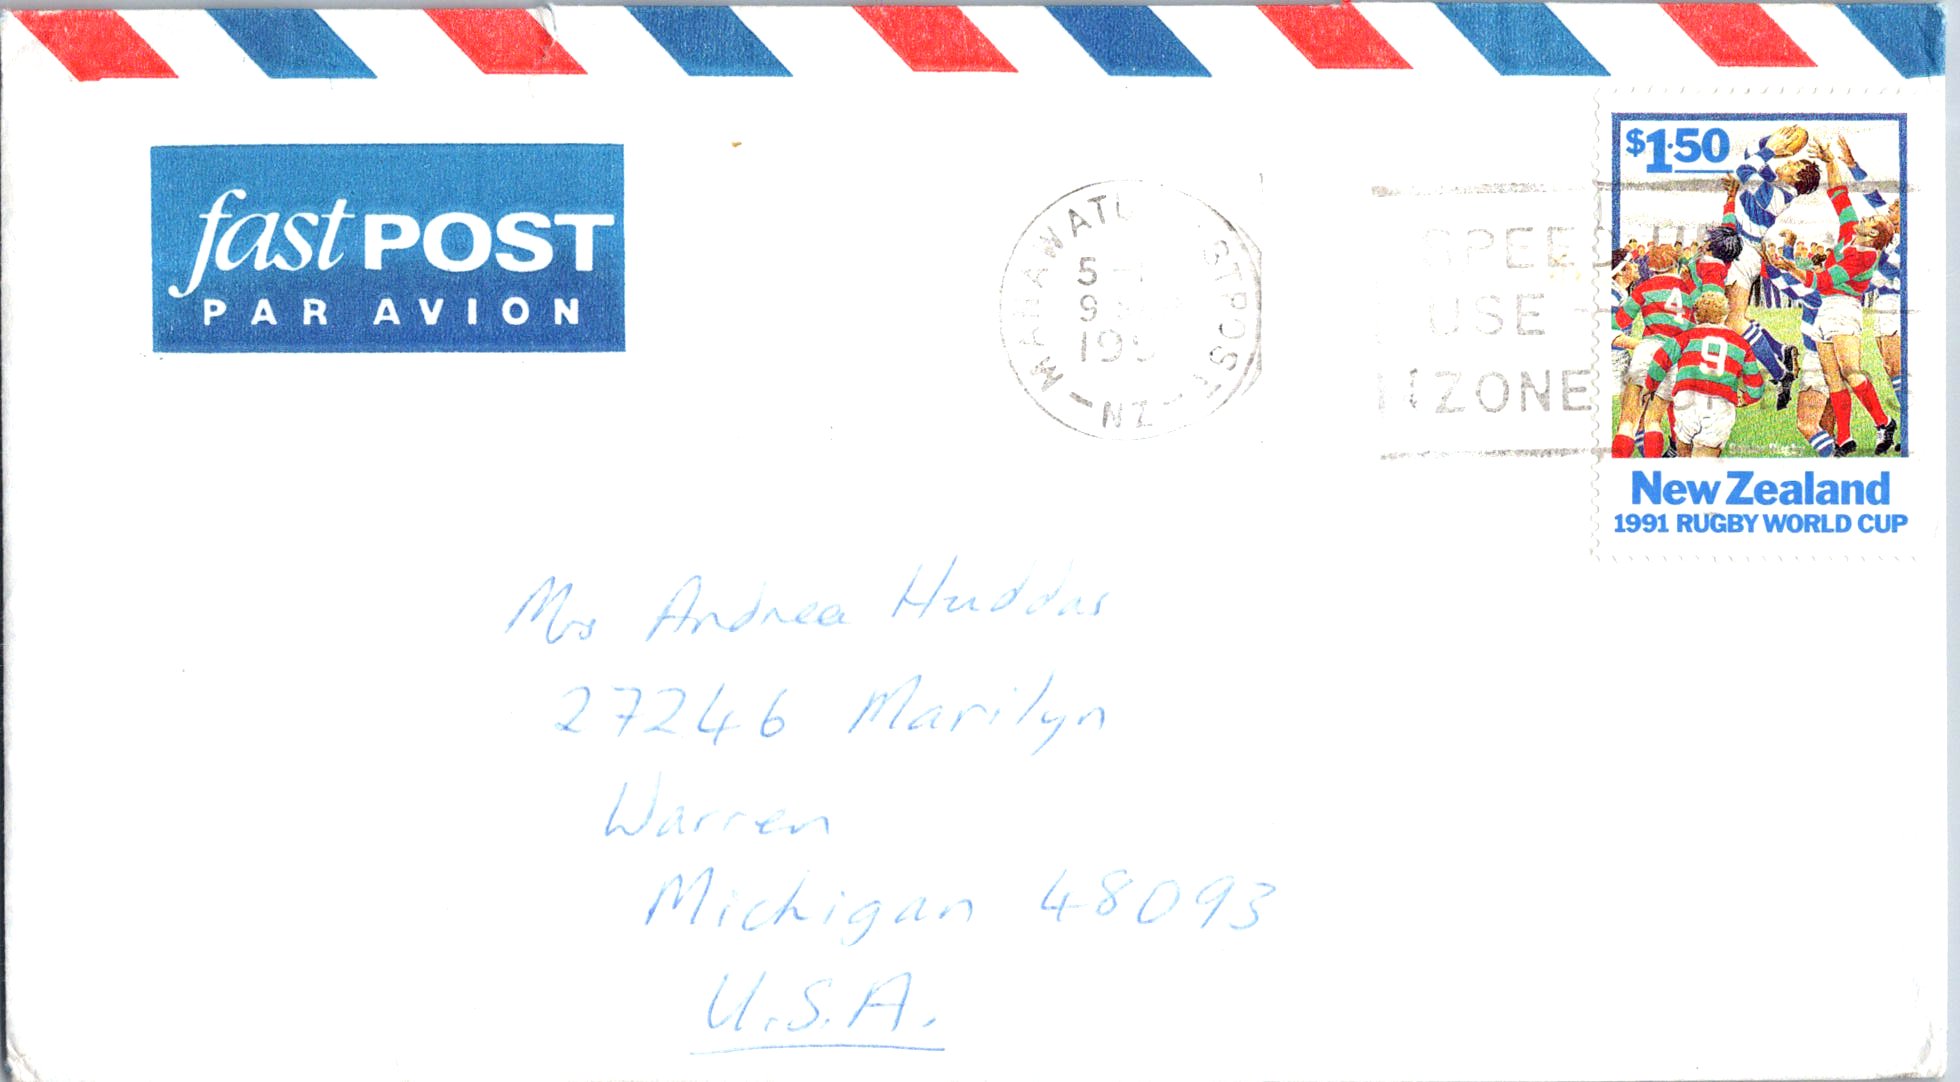 fast POST
PAR AVION
NZ
5
9
SPEED
USE
ZONE
$1.50
4
9
New Zealand
1991 RUGBY WORLD CUP
Mrs Andrea Huddas
27246 Marilyn
Warren
Michigan 48093
U.S.A.